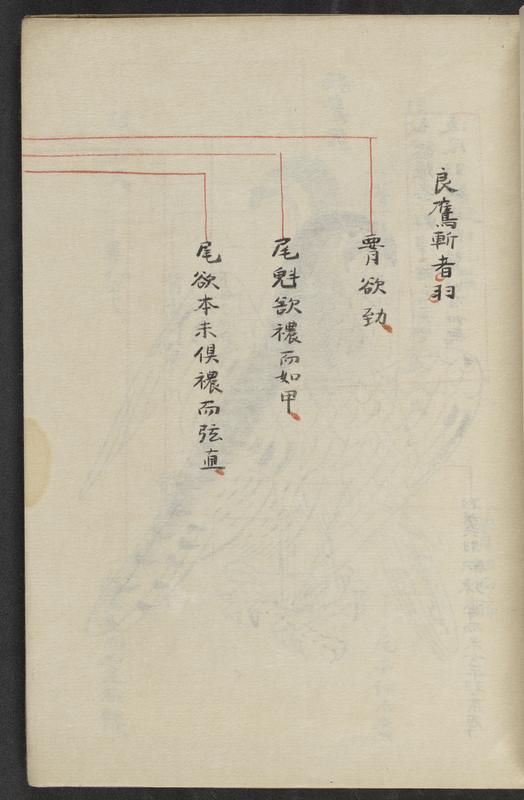 良鷹斬者羽
欲勁
尾魁欲襛而如甲
尾欲本末俱襛而弦直